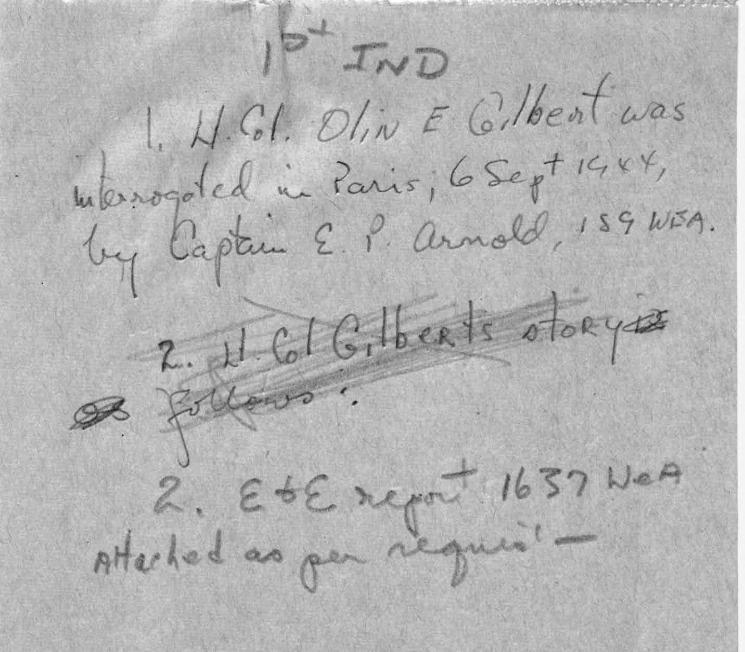 1st IND
1. Lt. Col. Olin E Gilbert was
interrogated in Paris, 6 Sept 1944,
by Captain E. P. Arnold, IS9 WEA.
2. Lt. Col Gilberts story is
as follows:
2. E & E report 1637 WEA
Attached as per request —